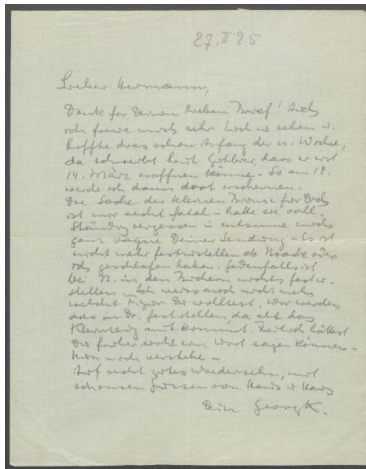 27. II 25
Lieber Hermann,
Dank für Deinen lieben Brief! Auch
ich freue mich sehr Dich zu sehen u.
hoffte dies schon Anfang der n. Woche,
da schreibt heut Gutbier, dass er erst
14. März eröffnen könne – So am 12.
werde ich dann dort erscheinen.
Die Sache der kleinen Bronze für Dich
ist mir recht fatal – hatte sie voll-
ständig vergessen u entsinne mich
ganz vague Deiner Sendung – Es ist
nicht mehr festzustellen ob Noack oder
ich geschlafen haben. Jedenfalls ist
bei N. in den Büchern nichts festzu-
stellen – Ich weiss auch nicht mehr
welche Figur Du wolltest. Wir werden
dies in Dr. feststellen, da all das
Kleinzeug mitkommt. Freilich hättest
Du früher wohl ein Wort sagen können –
Nun – ich verstehe –
Auf recht gutes Wiedersehn, mit
schönsten Grüssen von Haus zu Haus
Dein Georg K.